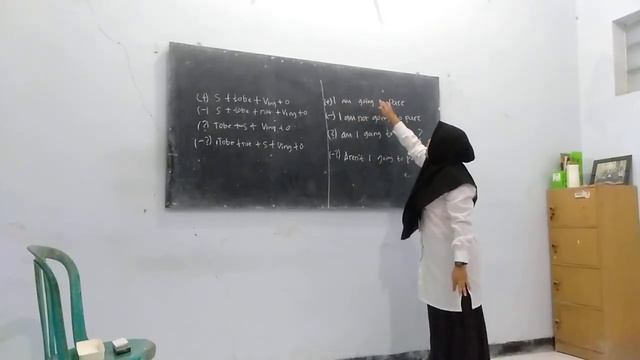 (+) S + tobe + Ving + O
(-) S + tobe + not + Ving + O
(?) Tobe + S + Ving + O
(-?) Tobe + not + S + Ving + O
(+) I am going Pare
(-) I am not going to pare
(?) am I going to ?
(-?) Aren't I going to